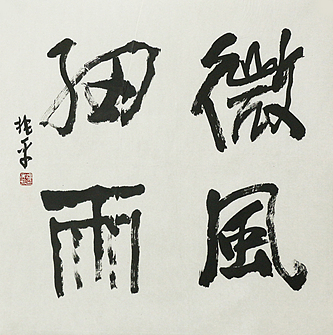 微風
細雨